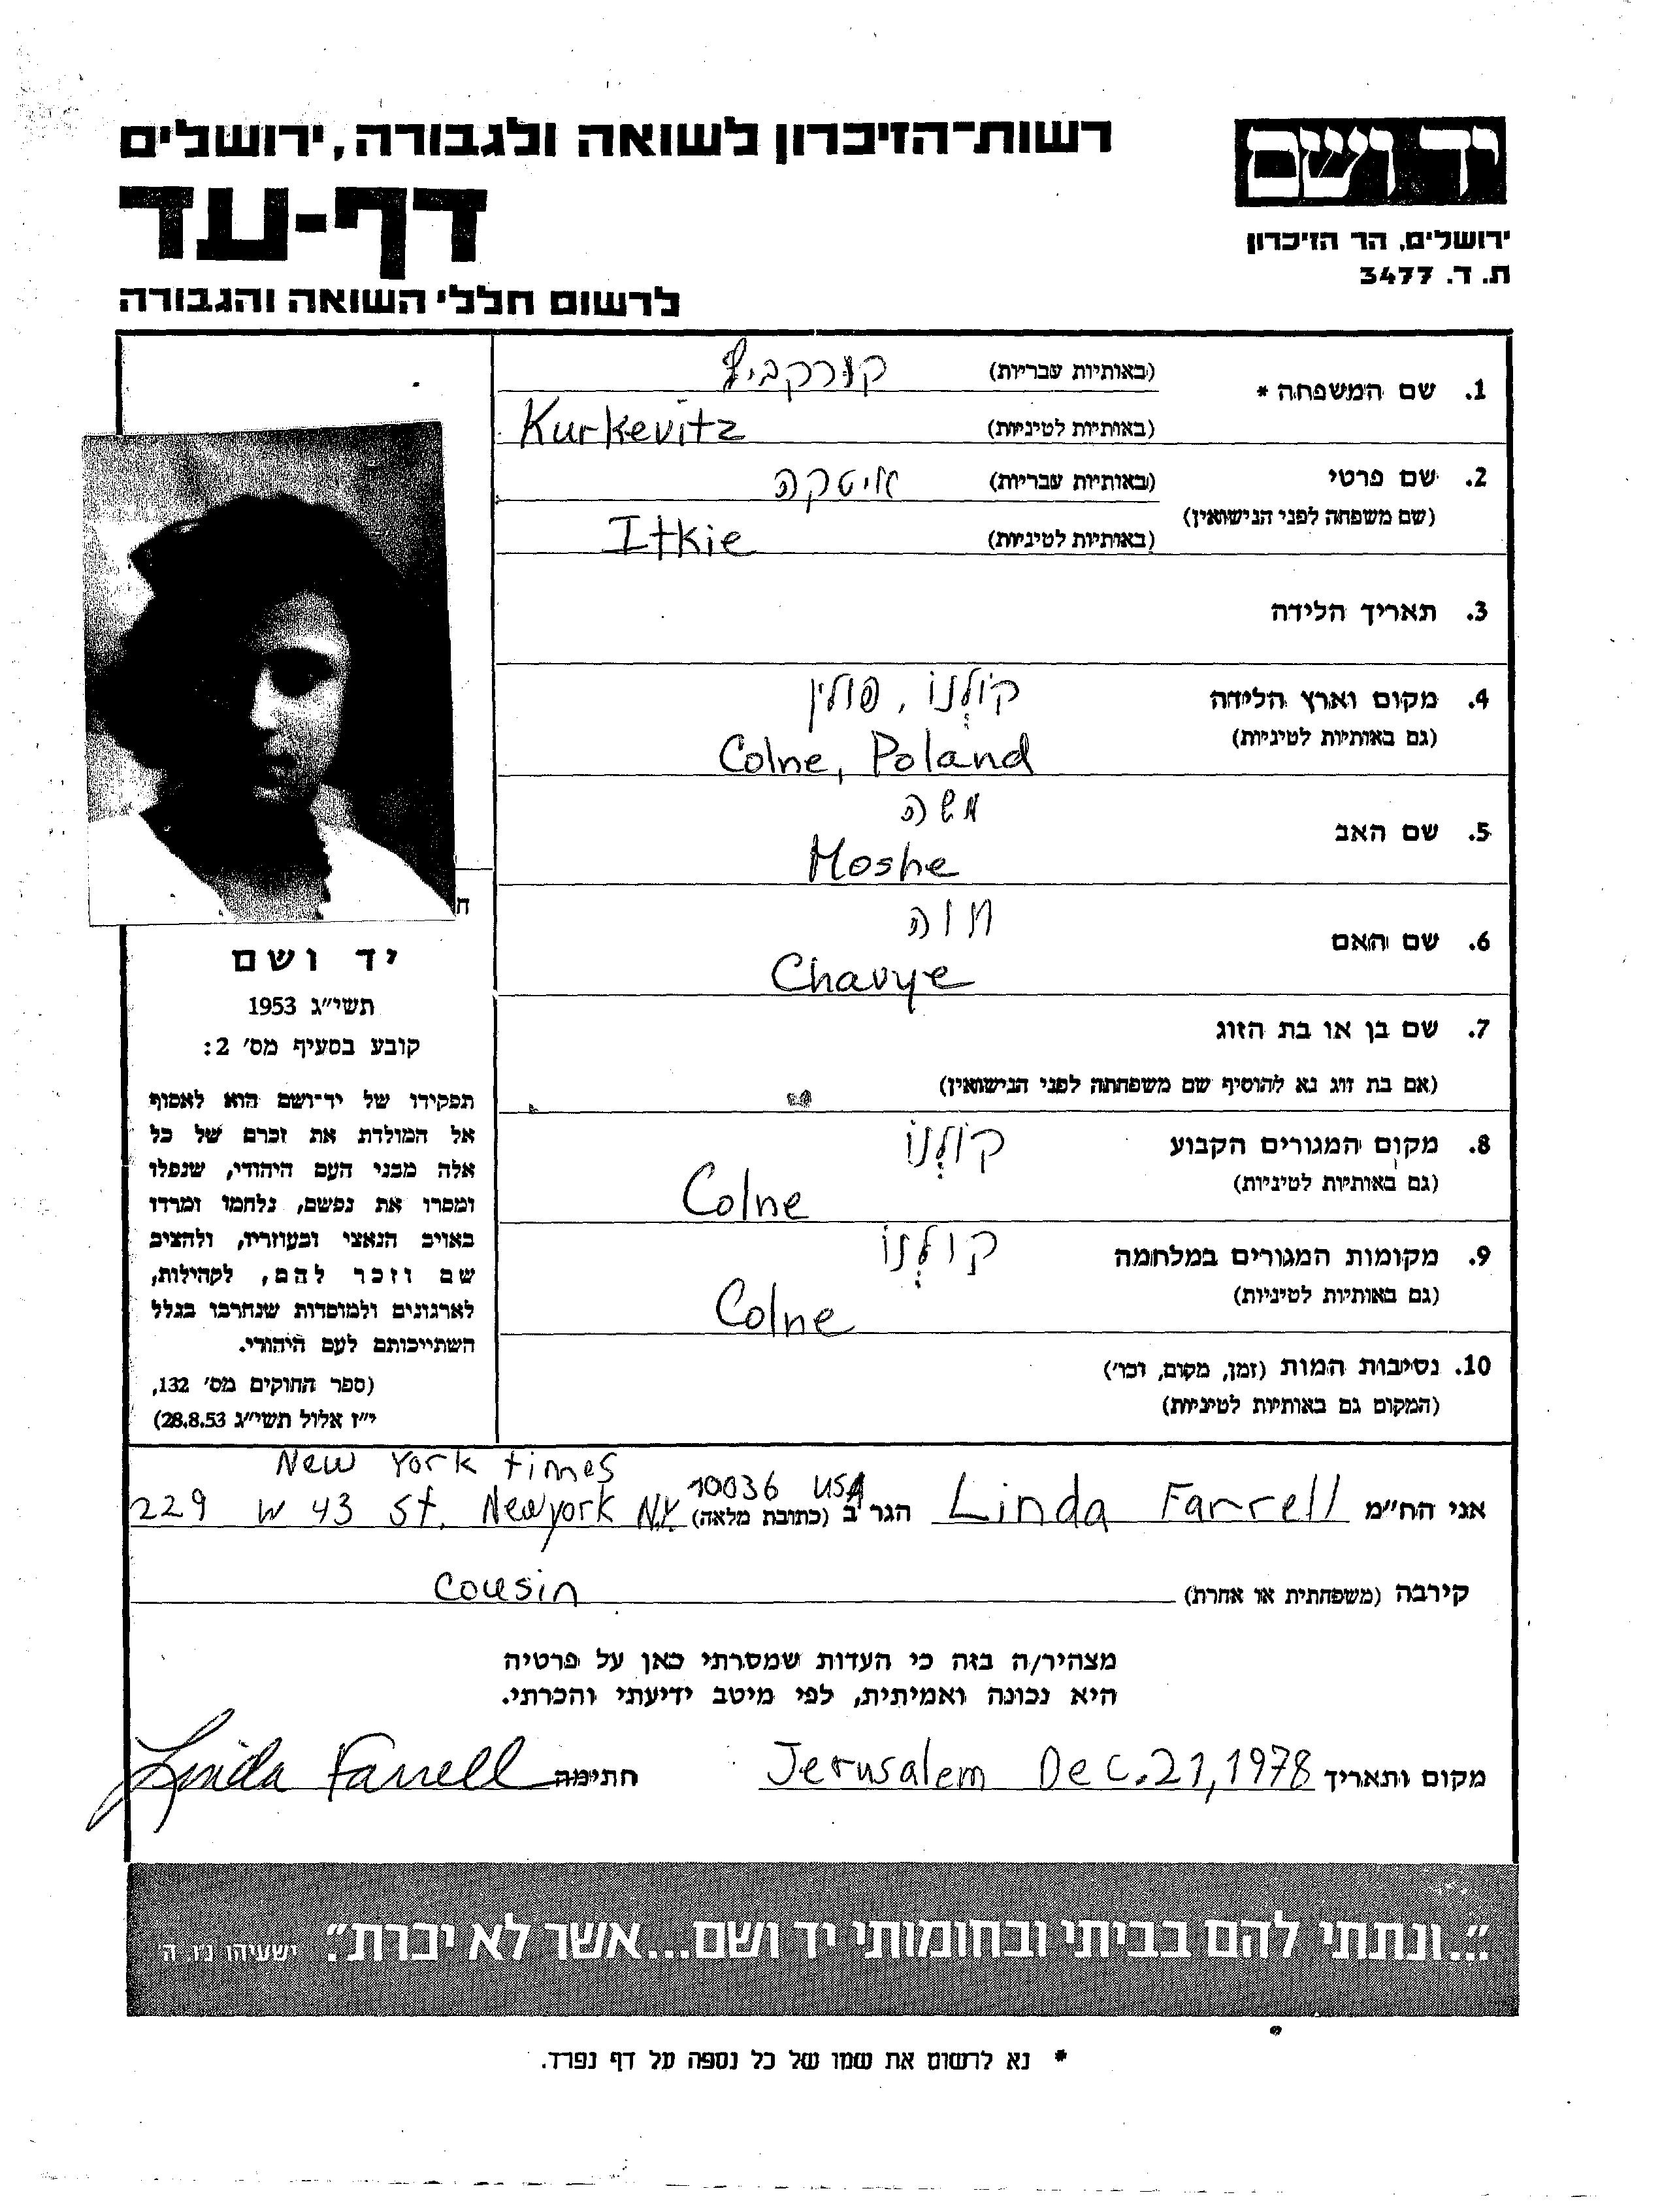 רשות־הזיכרון לשואה ולגבורה, ירושלים
דף-עד
לרשום חללי השואה והגבורה
יד ושם
ירושלים, הר הזיכרון
ת. ד. 3477
1. שם המשפחה * (באותיות עבריות) קורקביץ
(באותיות לטיניות) Kurkevitz
2. שם פרטי (באותיות עבריות) איטקה
(שם משפחה לפני הנישואין)
(באותיות לטיניות) Itkie
3. תאריך הלידה
4. מקום וארץ הלידה קוֹלְנוֹ, פולין
(גם באותיות לטיניות) Colne, Poland
5. שם האב משה
Moshe
6. שם האם חוה
Chavye
7. שם בן או בת הזוג
(אם בת זוג נא להוסיף שם משפחתה לפני הנישואין)
8. מקום המגורים הקבוע קוֹלְנוֹ
(גם באותיות לטיניות) Colne
9. מקומות המגורים במלחמה קולְנוֹ
(גם באותיות לטיניות) Colne
10. נסיבות המות (זמן, מקום, וכו')
(המקום גם באותיות לטיניות)
ח
יד ושם
תשי"ג 1953
קובע בסעיף מס' 2:
תפקידו של יד־ושם הוא לאסוף
אל המולדת את זכרם של כל
אלה מבני העם היהודי, שנפלו
ומסרו את נפשם, נלחמו ומרדו
באויב הנאצי ובעוזריו, ולהציב
שם וזכר להם, לקהילות,
לארגונים ולמוסדות שנחרבו בגלל
השתייכותם לעם היהודי.
(ספר החוקים מס' 132,
י"ז אלול תשי"ג 28.8.53)
אני הח"מ Linda Farrell הגר ב (כתובת מלאה) New York times
229 W 43 St. New york N.Y. 10036 USA
קירבה (משפחתית או אחרת) cousin
מצהיר/ה בזה כי העדות שמסרתי כאן על פרטיה
היא נכונה ואמיתית, לפי מיטב ידיעתי והכרתי.
מקום ותאריך Jerusalem Dec. 21, 1978 חתימה Linda Farrell
"...ונתתי להם בביתי ובחומותי יד ושם...אשר לא יכרת". ישעיהו נ"ו, ה'
* נא לרשום את שמו של כל נספה על דף נפרד.